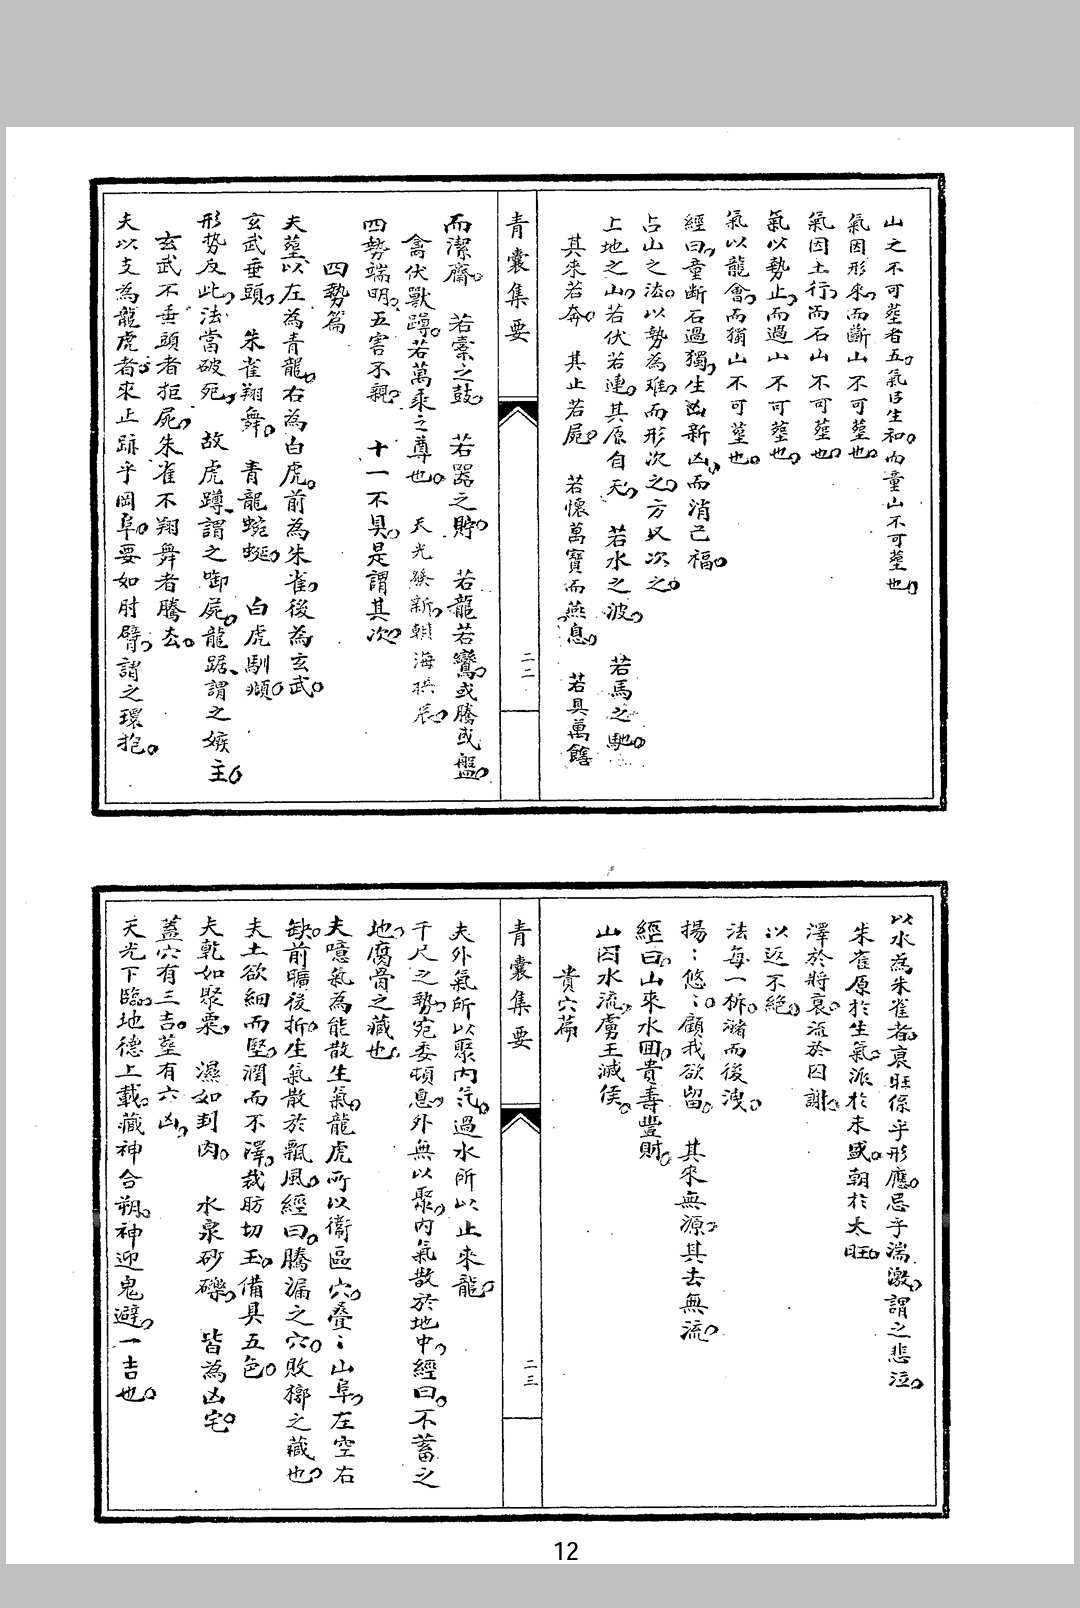 山之不可塟者五氣以生和而童山不可塟也
氣因形來而斷山不可塟也
氣因土行而石山不可塟也
氣以勢止而過山不可塟也
氣以龍會而獨山不可塟也
經曰童斷石過獨生凶新凶而消己福
占山之法以勢為难而形次之方又次之
上地之山若伏若連其原自天 若水之波 若馬之馳
其來若奔 其止若屍 若懷萬寶而燕息 若具萬饍
青囊集要
二二
而潔齋 若橐之鼓 若器之貯 若龍若鸞或騰或盤
禽伏獸蹲若萬乘之尊也 天光發新朝海拱辰
四勢端明五害不親 十一不具是謂其次
四勢篇
夫塟以左為青龍右為白虎前為朱雀後為玄武
玄武垂頭 朱雀翔舞 青龍蜿蜒 白虎馴頫
形势反此法當破死 故虎蹲謂之啣屍龍踞謂之嫉主
玄武不垂頭者拒屍朱雀不翔舞者騰去
夫以支為龍虎者來止跡乎岡阜要如肘臂謂之環抱
以水為朱雀者衰旺係乎形應忌乎湍激謂之悲泣
朱雀原於生氣派於未盛朝於太旺
澤於將衰流於囚謝
以返不絕
法每一折瀦而後洩
揚〻悠〻顧我欲留 其來無源其去無流
經曰山來水囬貴壽豐財
山囚水流虜王滅侯
貴穴篇
青囊集要
二三
夫外氣所以聚內氣過水所以止來龍
千尺之勢宛委頓息外無以聚內氣散於地中經曰不蓄之
地腐骨之藏也
夫噫氣為能散生氣龍虎所以衛區穴叠〻山阜左空右
缺前曠後折生氣散於飄風經曰騰漏之穴敗槨之藏也
夫土欲細而堅潤而不澤裁肪切玉備具五色
夫乾如聚粟 濕如刲肉 水泉砂礫 皆為凶宅
蓋穴有三吉塟有六凶
天光下臨地德上載藏神合朔神迎鬼避一吉也
12